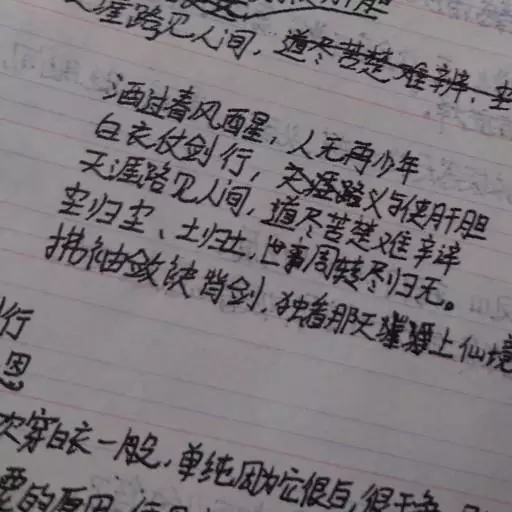 天涯路见人间，道尽苦楚难辨．尘
酒过春风酉星，人无再少年
白衣仗剑行，天涯路义字使肝胆
天涯路见人间，道尽苦楚难辛辞
尘归尘、土归土，世事周转尽归无。
拂袖敛诀背剑，独看那天涯上仙境
行
恩
次穿白衣一般，单纯因为它很白，很干净
要的原因